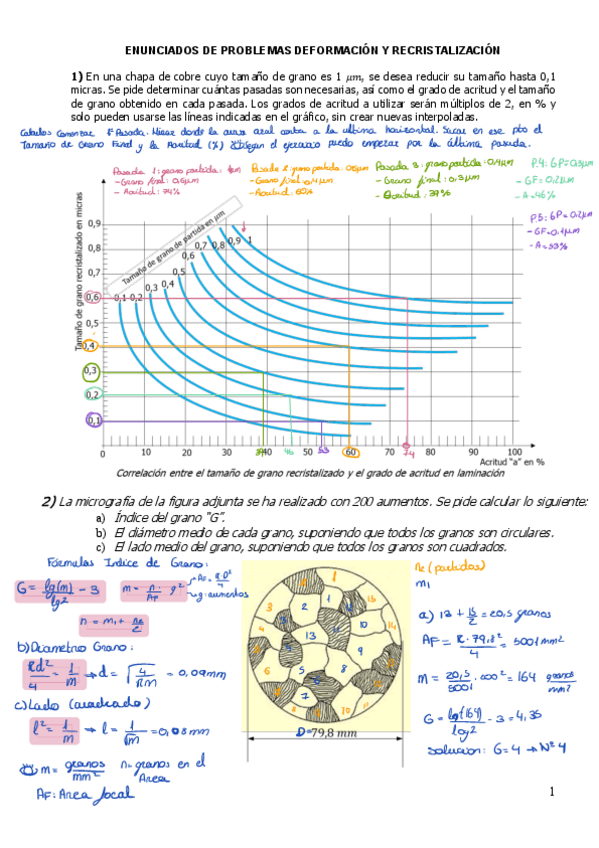 ENUNCIADOS DE PROBLEMAS DEFORMACIÓN Y RECRISTALIZACIÓN
1) En una chapa de cobre cuyo tamaño de grano es 1 μm, se desea reducir su tamaño hasta 0,1
micras. Se pide determinar cuántas pasadas son necesarias, así como el grado de acritud y el tamaño
de grano obtenido en cada pasada. Los grados de acritud a utilizar serán múltiplos de 2, en % y
solo pueden usarse las líneas indicadas en el gráfico, sin crear nuevas interpoladas.
Calculos Comenzar 1ª Pasada. Mirar donde la curva azul corta a la ultima horizontal. Sacar en ese pto el
Tamaño de Grano Final y la Acritud (%) Según el ejercicio puedo empezar por la última pasada.
Pasada 1: grano partida: 1μm
- Grano final: 0,6μm
- Acritud: 74%
Pasada 2: grano partida: 0,6μm
- Grano final: 0,4μm
- Acritud: 60%
Pasada 3: grano partida: 0,4μm
- Grano final: 0,3μm
- Acritud: 39%
P.4: GP=0,3μm
- GF=0,2μm
- A=46%
P5: GP=0,2μm
- GF=0,1μm
- A=53%
Tamaño de grano recristalizado en micras
Tamaño de grano de partida en μm
0,9
0,8
0,7
0,6
0,5
0,4
0,3
0,2
0,1
0,1 0,2 0,3 0,4 0,5 0,6 0,7 0,8 0,9 1
0 10 20 30 39 40 46 50 53 60 70 74 80 90 100
Acritud "a" en %
Correlación entre el tamaño de grano recristalizado y el grado de acritud en laminación
2) La micrografía de la figura adjunta se ha realizado con 200 aumentos. Se pide calcular lo siguiente:
a) Índice del grano "G".
b) El diámetro medio de cada grano, suponiendo que todos los granos son circulares.
c) El lado medio del grano, suponiendo que todos los granos son cuadrados.
Fórmulas Indice de Grano:
G = lg(m)/lg2 - 3
m = n/AF · g²
AF = π·D²/4
g: aumentos
n = m₁ + n₂/2
b) Diametro Grano:
πd²/4 = 1/m → d = √4/πm = 0,09mm
c) Lado (cuadrado)
l² = 1/m → l = 1/√m = 0,08 mm
m = granos/mm² n = granos en el Area
AF: Area focal
D=79,8 mm
n₂ (partidos)
m₁
a) 13 + 15/2 = 20,5 granos
AF = π·79,8²/4 = 5001 mm²
m = 20,5/5001 · 200² = 164 granos/mm²
G = lg(164)/log2 - 3 = 4,35
solucion: G=4 → Nº 4
1